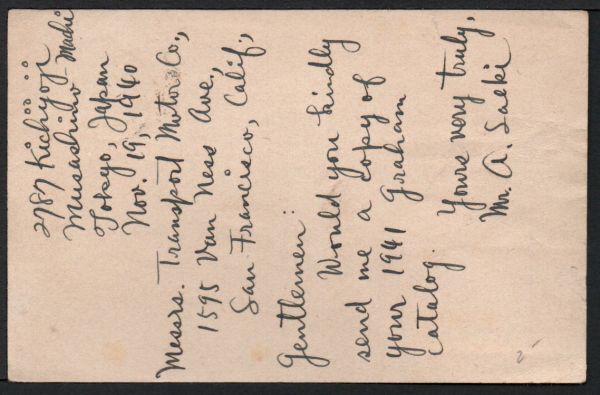 2787 Kichijoji
Musashino-Machi
Tokyo, Japan
Nov. 19, 1940
Messrs. Transport Motor Co.,
1595 Van Ness Ave.,
San Francisco, Calif.,
Gentlemen:
Would you kindly
send me a copy of
your 1941 Graham
Catalog.
Yours very truly,
Mr. A. Saeki